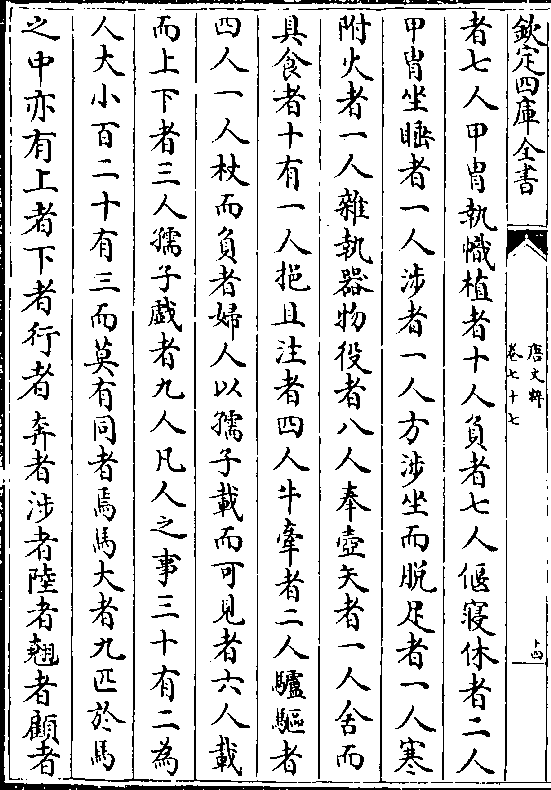 欽定四庫全書
唐文粹
卷七十七
十四
者七人甲胄執幟植者十人負者七人偃寢休者二人
甲胄坐睡者一人涉者一人方涉坐而脫足者一人寒
附火者一人雜執器物役者八人奉壺矢者一人舍而
具食者十有一人挹且注者四人牛牽者二人驢驅者
四人一人杖而負者婦人以孺子載而可見者六人載
而上下者三人孺子戲者九人凡人之事三十有二為
人大小百二十有三而莫有同者焉馬大者九匹於馬
之中亦有上者下者行者奔者涉者陸者翹者顧者